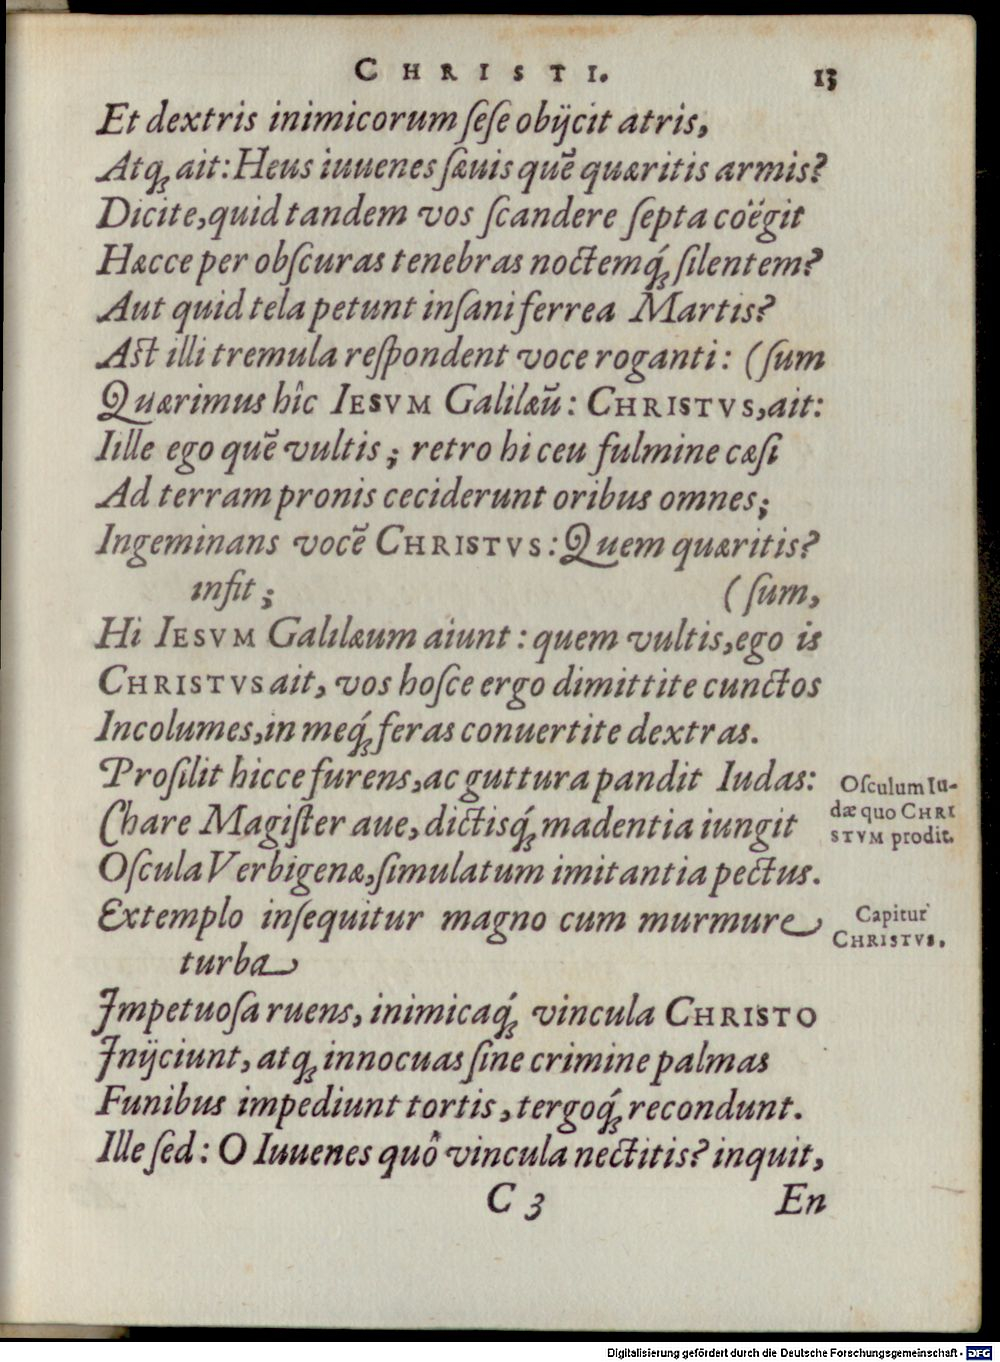 CHRISTI. 13
Et dextris inimicorum ſeſe obijcit atris,
Atq́ꝫ ait: Heus iuuenes ſæuis quẽ quæritis armis?
Dicite, quid tandem vos ſcandere ſepta coëgit
Hæcce per obſcuras tenebras noctemq́ꝫ ſilentem?
Aut quid tela petunt inſani ferrea Martis?
Aſt illi tremula reſpondent voce roganti: (ſum
Quærimus hîc IESVM Galilæũ: CHRISTVS, ait:
Iille ego quẽ vultis; retro hi ceu fulmine cæſi
Ad terram pronis ceciderunt oribus omnes;
Ingeminans vocẽ CHRISTVS: Quem quæritis?
infit; (ſum,
Hi IESVM Galilæum aiunt: quem vultis, ego is
CHRISTVS ait, vos hoſce ergo dimittite cunctos
Incolumes, in meq́ꝫ feras conuertite dextras.
Proſilit hicce furens, ac guttura pandit Iudas:
Chare Magiſter aue, dictisq́ꝫ madentia iungit
Oſcula Verbigenæ, ſimulatum imitantia pectus.
Extemplo inſequitur magno cum murmure
turba
Impetuoſa ruens, inimicaq́ꝫ vincula CHRISTO
Inijciunt, atqꝫ innocuas ſine crimine palmas
Funibus impediunt tortis, tergoq́ꝫ recondunt.
Ille ſed: O Iuuenes quô vincula nectitis? inquit,
C 3 En
Oſculum Iu-
dæ quo CHRI
STVM prodit.
Capitur
CHRISTVS.
Digitalisierung gefördert durch die Deutsche Forschungsgemeinschaft - DFG